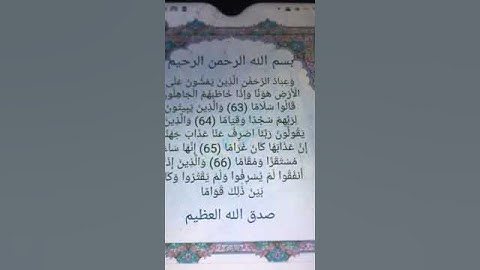 بسم الله الرحمن الرحيم
وَعِبَادُ الرَّحْمَٰنِ الَّذِينَ يَمْشُونَ عَلَى
الْأَرْضِ هَوْنًا وَإِذَا خَاطَبَهُمُ الْجَاهِلُو
قَالُوا سَلَامًا (63) وَالَّذِينَ يَبِيتُونَ
لِرَبِّهِمْ سُجَّدًا وَقِيَامًا (64) وَالَّذِينَ
يَقُولُونَ رَبَّنَا اصْرِفْ عَنَّا عَذَابَ جَهَنَّ
إِنَّ عَذَابَهَا كَانَ غَرَامًا (65) إِنَّهَا سَاءَ
مُسْتَقَرًّا وَمُقَامًا (66) وَالَّذِينَ إِذَ
أَنْفَقُوا لَمْ يُسْرِفُوا وَلَمْ يَقْتُرُوا وَكَا
بَيْنَ ذَلِكَ قَوَامًا
صدق الله العظيم